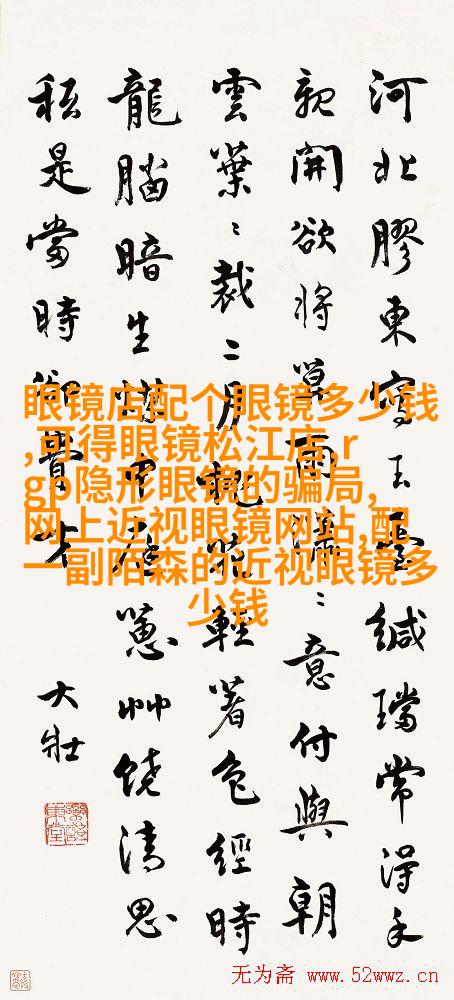 河北膠東寫玉臺緘璫常得手
親開欲將雨意付與朝
雲葉裁二月花輕著色經時
龍腦暗生蔥艸饒清思
秖是當時才
大壯
眼镜店配个眼镜多少钱
,可得眼镜松江店,r
gp隐形眼镜的骗局,
网上近视眼镜网站,配
一副陌森的近视眼镜多
少钱
无为斋 www.52wwz.cn